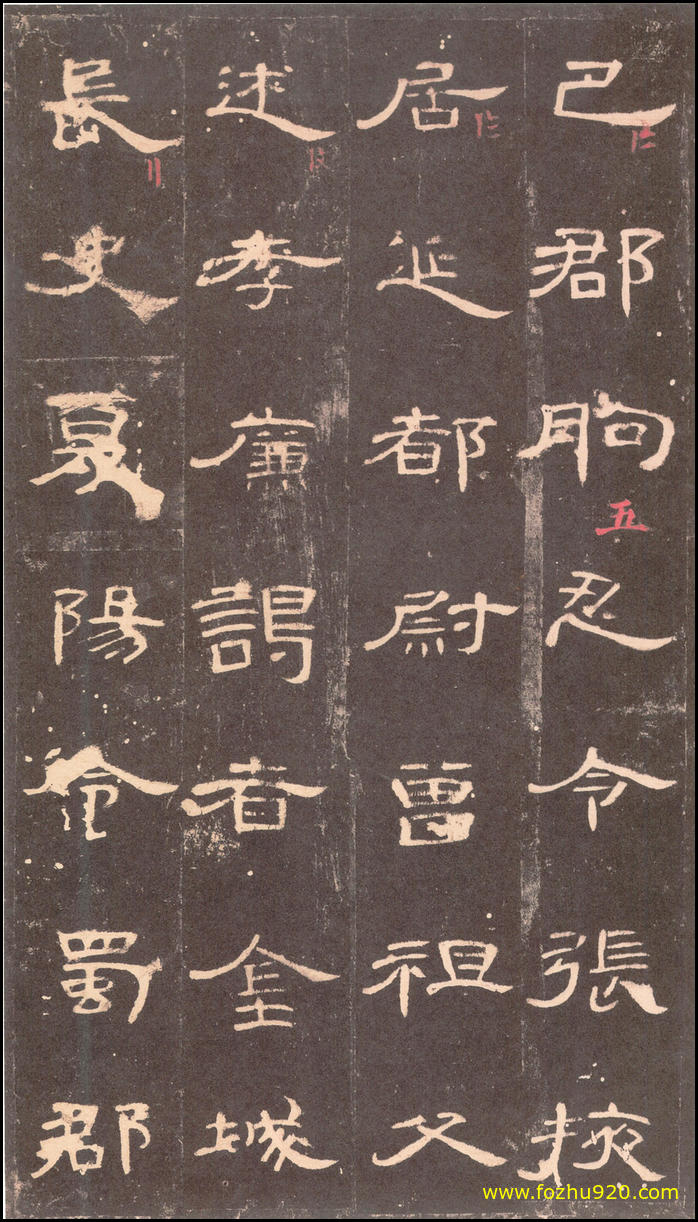 巴郡朐忍令張掖
五
居延都尉曾祖父
述孝廉謁者金城
長史夏陽令蜀郡
www.fozhu920.com